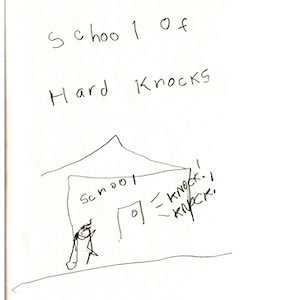 School Of
Hard Knocks
School
KNOCK!
KNOCK!